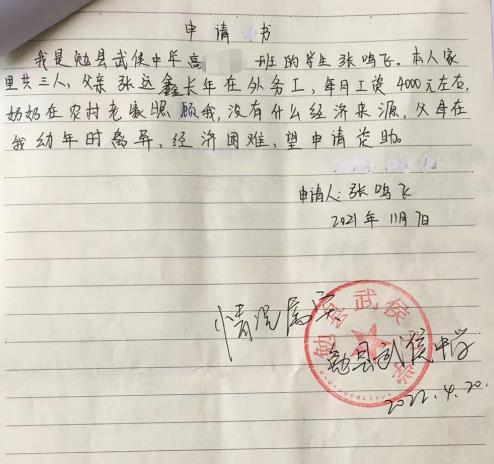 申请 书
我是勉县武侯中学高 班的学生张鸣飞。本人家
里共三人，父亲张远鑫长年在外务工，每月工资4000元左右，
奶奶在农村老家照顾我，没有什么经济来源，父母在
我幼年时离异，经济困难，望申请资助。
申请人：张鸣飞
2021年11月7日
情况属实
勉县武侯中学
勉县武侯中学
2022.4.20.